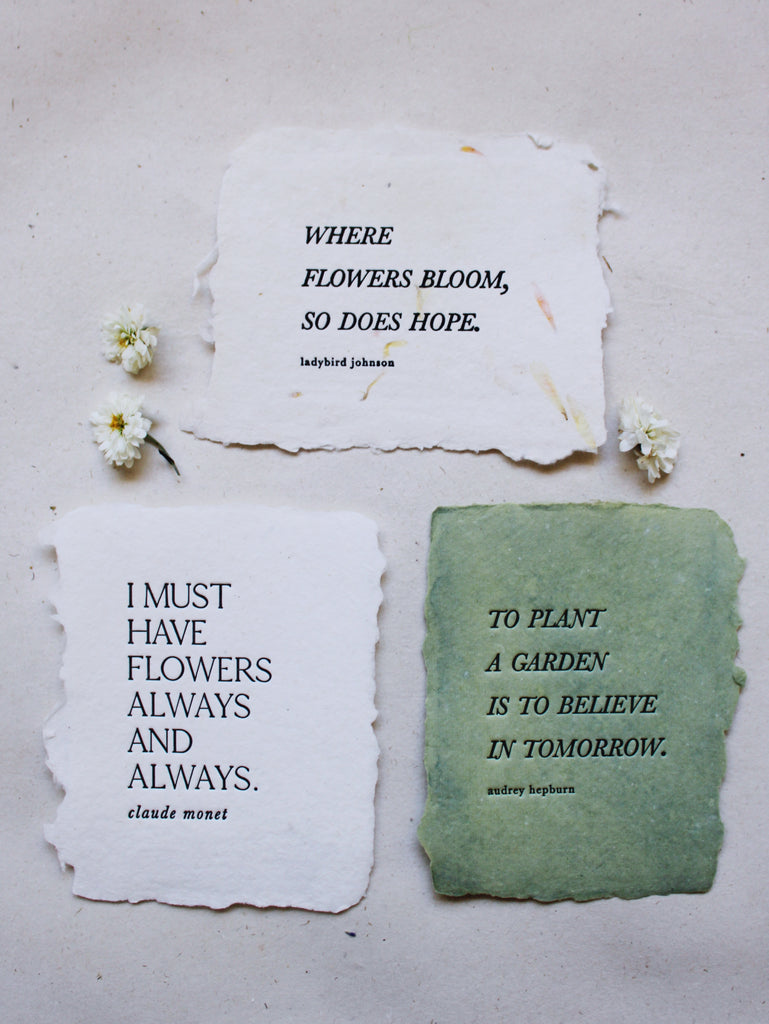 WHERE
FLOWERS BLOOM,
SO DOES HOPE.
ladybird johnson
I MUST
HAVE
FLOWERS
ALWAYS
AND
ALWAYS.
claude monet
TO PLANT
A GARDEN
IS TO BELIEVE
IN TOMORROW.
audrey hepburn